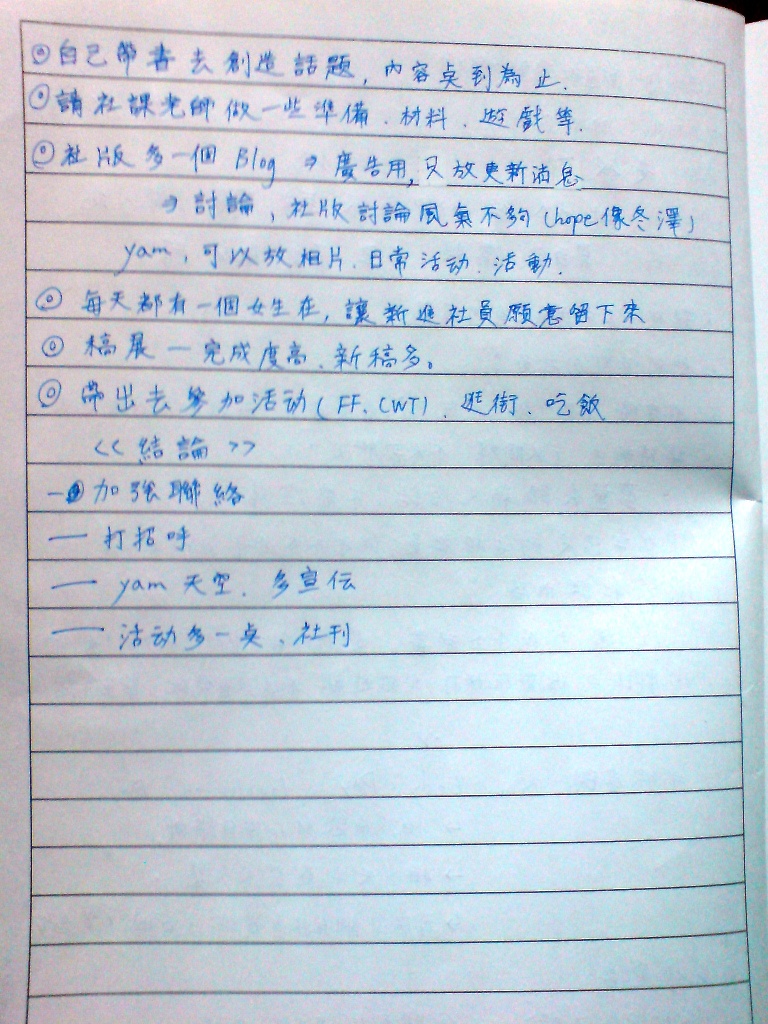 ◎自己帶書去創造話題,內容点到為止.
◎請社課老師做一些準備、材料、遊戲等.
◎社版多一個 Blog → 廣告用,只放更新消息
→ 討論,社版討論風氣不夠(hope像冬澤)
yam,可以放相片、日常活动、活動.
◎ 每天都有一個女生在,讓新進社員願意留下來
◎ 稿展 — 完成度高、新稿多。
◎ 帶出去參加活动(FF、CWT)、逛街、吃飯
<<結論>>
— 加強聯絡
— 打招呼
— yam 天空、多宣伝
— 活动多一点、社刊